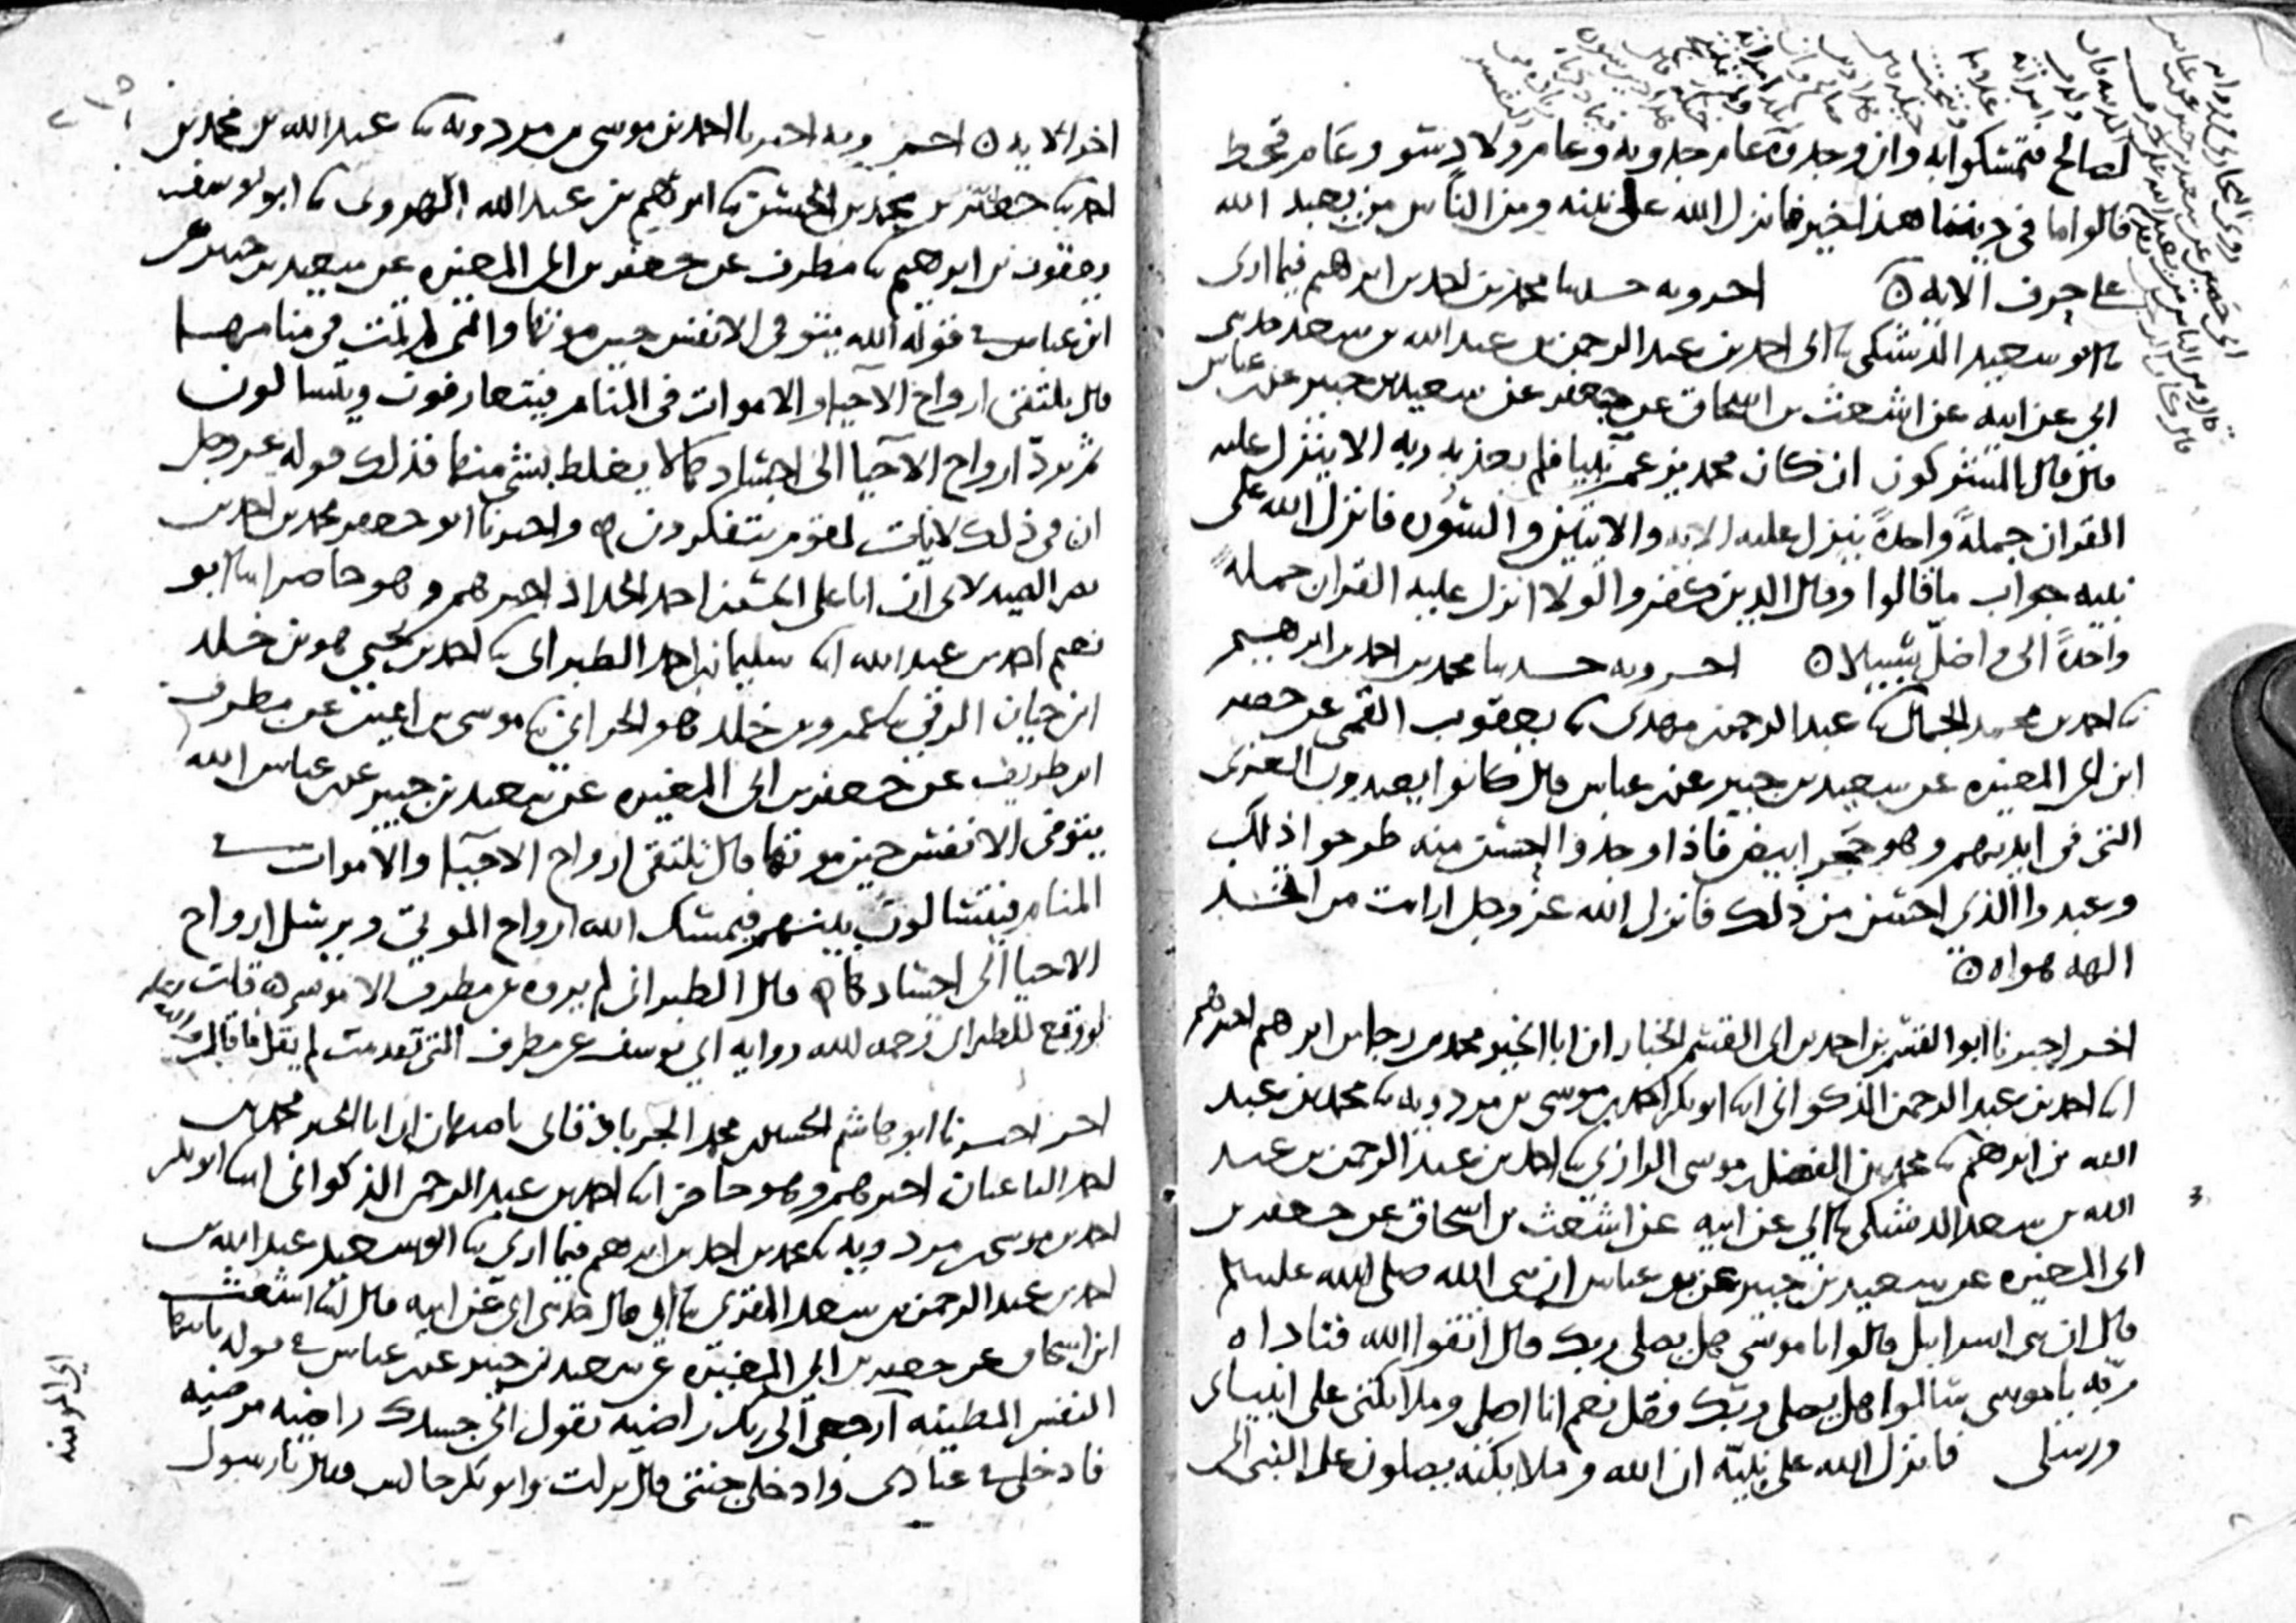 لصالح فتمسكوا به وان وجدوه عام جدوبه وعام ولاد سو وعام قحط
قالوا ما في ديننا هذا خير فانزل الله على نبيه ومن الناس من يعبد الله
على حرف الايه ه اخر وبه حدثنا محمد بن احمد بن ابرهيم فيما ارى
نا ابو سعيد الدشتكي نا ابي احمد بن عبد الرحمن بن عبد الله بن سعد حدثني
ابي عن ابيه عن اشعث بن اسحاق عن جعفر عن سعيد بن جبير عن ابن عباس
قال قال المشركون ان كان محمد يزعم نبيا فلم يعذبه ربه الا ينزل عليه
القران جملة واحدة ينزل عليه الايه والايتين والسوره فانزل الله على
نبيه جواب ما قالوا وقال الذين كفروا لولا انزل عليه القران جملة
واحدة الى واضل سبيلا ه اخر وبه حدثنا محمد بن احمد بن ابرهيم
نا احمد بن محمد الجمال نا عبد الرحمن مهدى نا يعقوب القمي عن جعفر
ابن ابي المغيره عن سعيد بن جبير عن ابن عباس قال كانوا يعبدون العزى
التي في ايديهم وهو حجر ابيض فاذا وجدوا احسن منه طرحوا ذلك
وعبدوا الذي احسن من ذلك فانزل الله عز وجل ارايت من اتخذ
الهه هواه ه
اخر اخبرنا ابو القسم بن احمد بن ابي القسم الخباز ان ابا الخير محمد بن رجا بن ابرهيم اخبرهم
ابنا احمد بن عبد الرحمن الذكواني ابنا ابو بكر احمد بن موسى بن مردويه نا محمد بن عبد
الله بن ابرهيم نا محمد بن الفضل بن موسى الرازي نا احمد بن عبد الرحمن بن عبد
الله بن سعد الدشتكي نا ابي عن ابيه عن اشعث بن اسحاق عن جعفر بن
ابي المغيره عن سعيد بن جبير عن ابن عباس ان نبي الله صلى الله عليه وسلم
قال ان بني اسرايل قالوا يا موسى هل يصلي ربك قال اتقوا الله فناداه
ربه يا موسى سالوا هل يصلي ربك فقل نعم انا اصلي وملايكتي على انبياي
ورسلي فانزل الله على نبيه ان الله وملايكته يصلون على النبي الى
اخر الايه ه اخر وبه اخبرنا احمد بن موسى بن مردويه نا عبد الله بن محمد بن
احمد نا جعفر بن محمد بن الحسن نا ابرهيم بن عبد الله الهروي نا ابو يوسف
يعقوب بن ابرهيم نا مطرف عن جعفر بن ابي المغيره عن سعيد بن جبير عن
ابن عباس في قوله الله يتوفى الانفس حين موتها والتي لم تمت في منامها
قال يلتقي ارواح الاحيا والاموات في المنام فيتعارفون ويتسالون
ثم يرد ارواح الاحيا الى اجسادها لا يغلط بشي منها فذلك قوله عز وجل
ان في ذلك لايات لقوم يتفكرون ه واخبرنا ابو جعفر محمد بن احمد بن
نصر الصيدلاني ان ابا علي الحسن بن احمد الحداد اخبرهم وهو حاضر ابنا ابو
نعيم احمد بن عبد الله ابنا سليمان بن احمد الطبراني نا احمد بن يحيى هو بن خلد
ابن حيان الرقي نا عمرو بن خلد هو الحراني نا موسى بن اعين عن مطرف
ابن طريف عن جعفر بن ابي المغيره عن سعيد بن جبير عن ابن عباس الله
يتوفى الانفس حين موتها قال تلتقي ارواح الاحيا والاموات في
المنام فيتسالون بينهم فيمسك الله ارواح الموتى ويرسل ارواح
الاحيا الى اجسادها ه قال الطبراني لم يروه عن مطرف الا موسى ه قلت
لو وقع للطبراني رحمه الله روايه ابي يوسف عن مطرف التي تقدمت لم يقل ما قال
اخر اخبرنا ابو هاشم الحسين بن محمد الجرباذقاني باصبهان ان ابا الخير محمد بن
احمد الباغبان اخبرهم وهو حاضر ابنا احمد بن عبد الرحمن الذكواني ابنا ابو بكر
احمد بن موسى بن مردويه نا محمد بن احمد بن ابرهيم فيما ارى نا ابو سعيد عبد الله بن
احمد بن عبد الرحمن بن سعد المقري نا ابي قال حدثني ابي عن ابيه قال ابنا اشعث
ابن اسحاق عن جعفر بن ابي المغيره عن سعيد بن جبير عن ابن عباس في قوله يا ايتها
النفس المطمئنه ارجعي الى ربك راضيه يقول الى جسدك راضيه مرضيه
فادخلي في عبادى وادخلي جنتي قال نزلت وابو بكر جالس فقال يا رسول